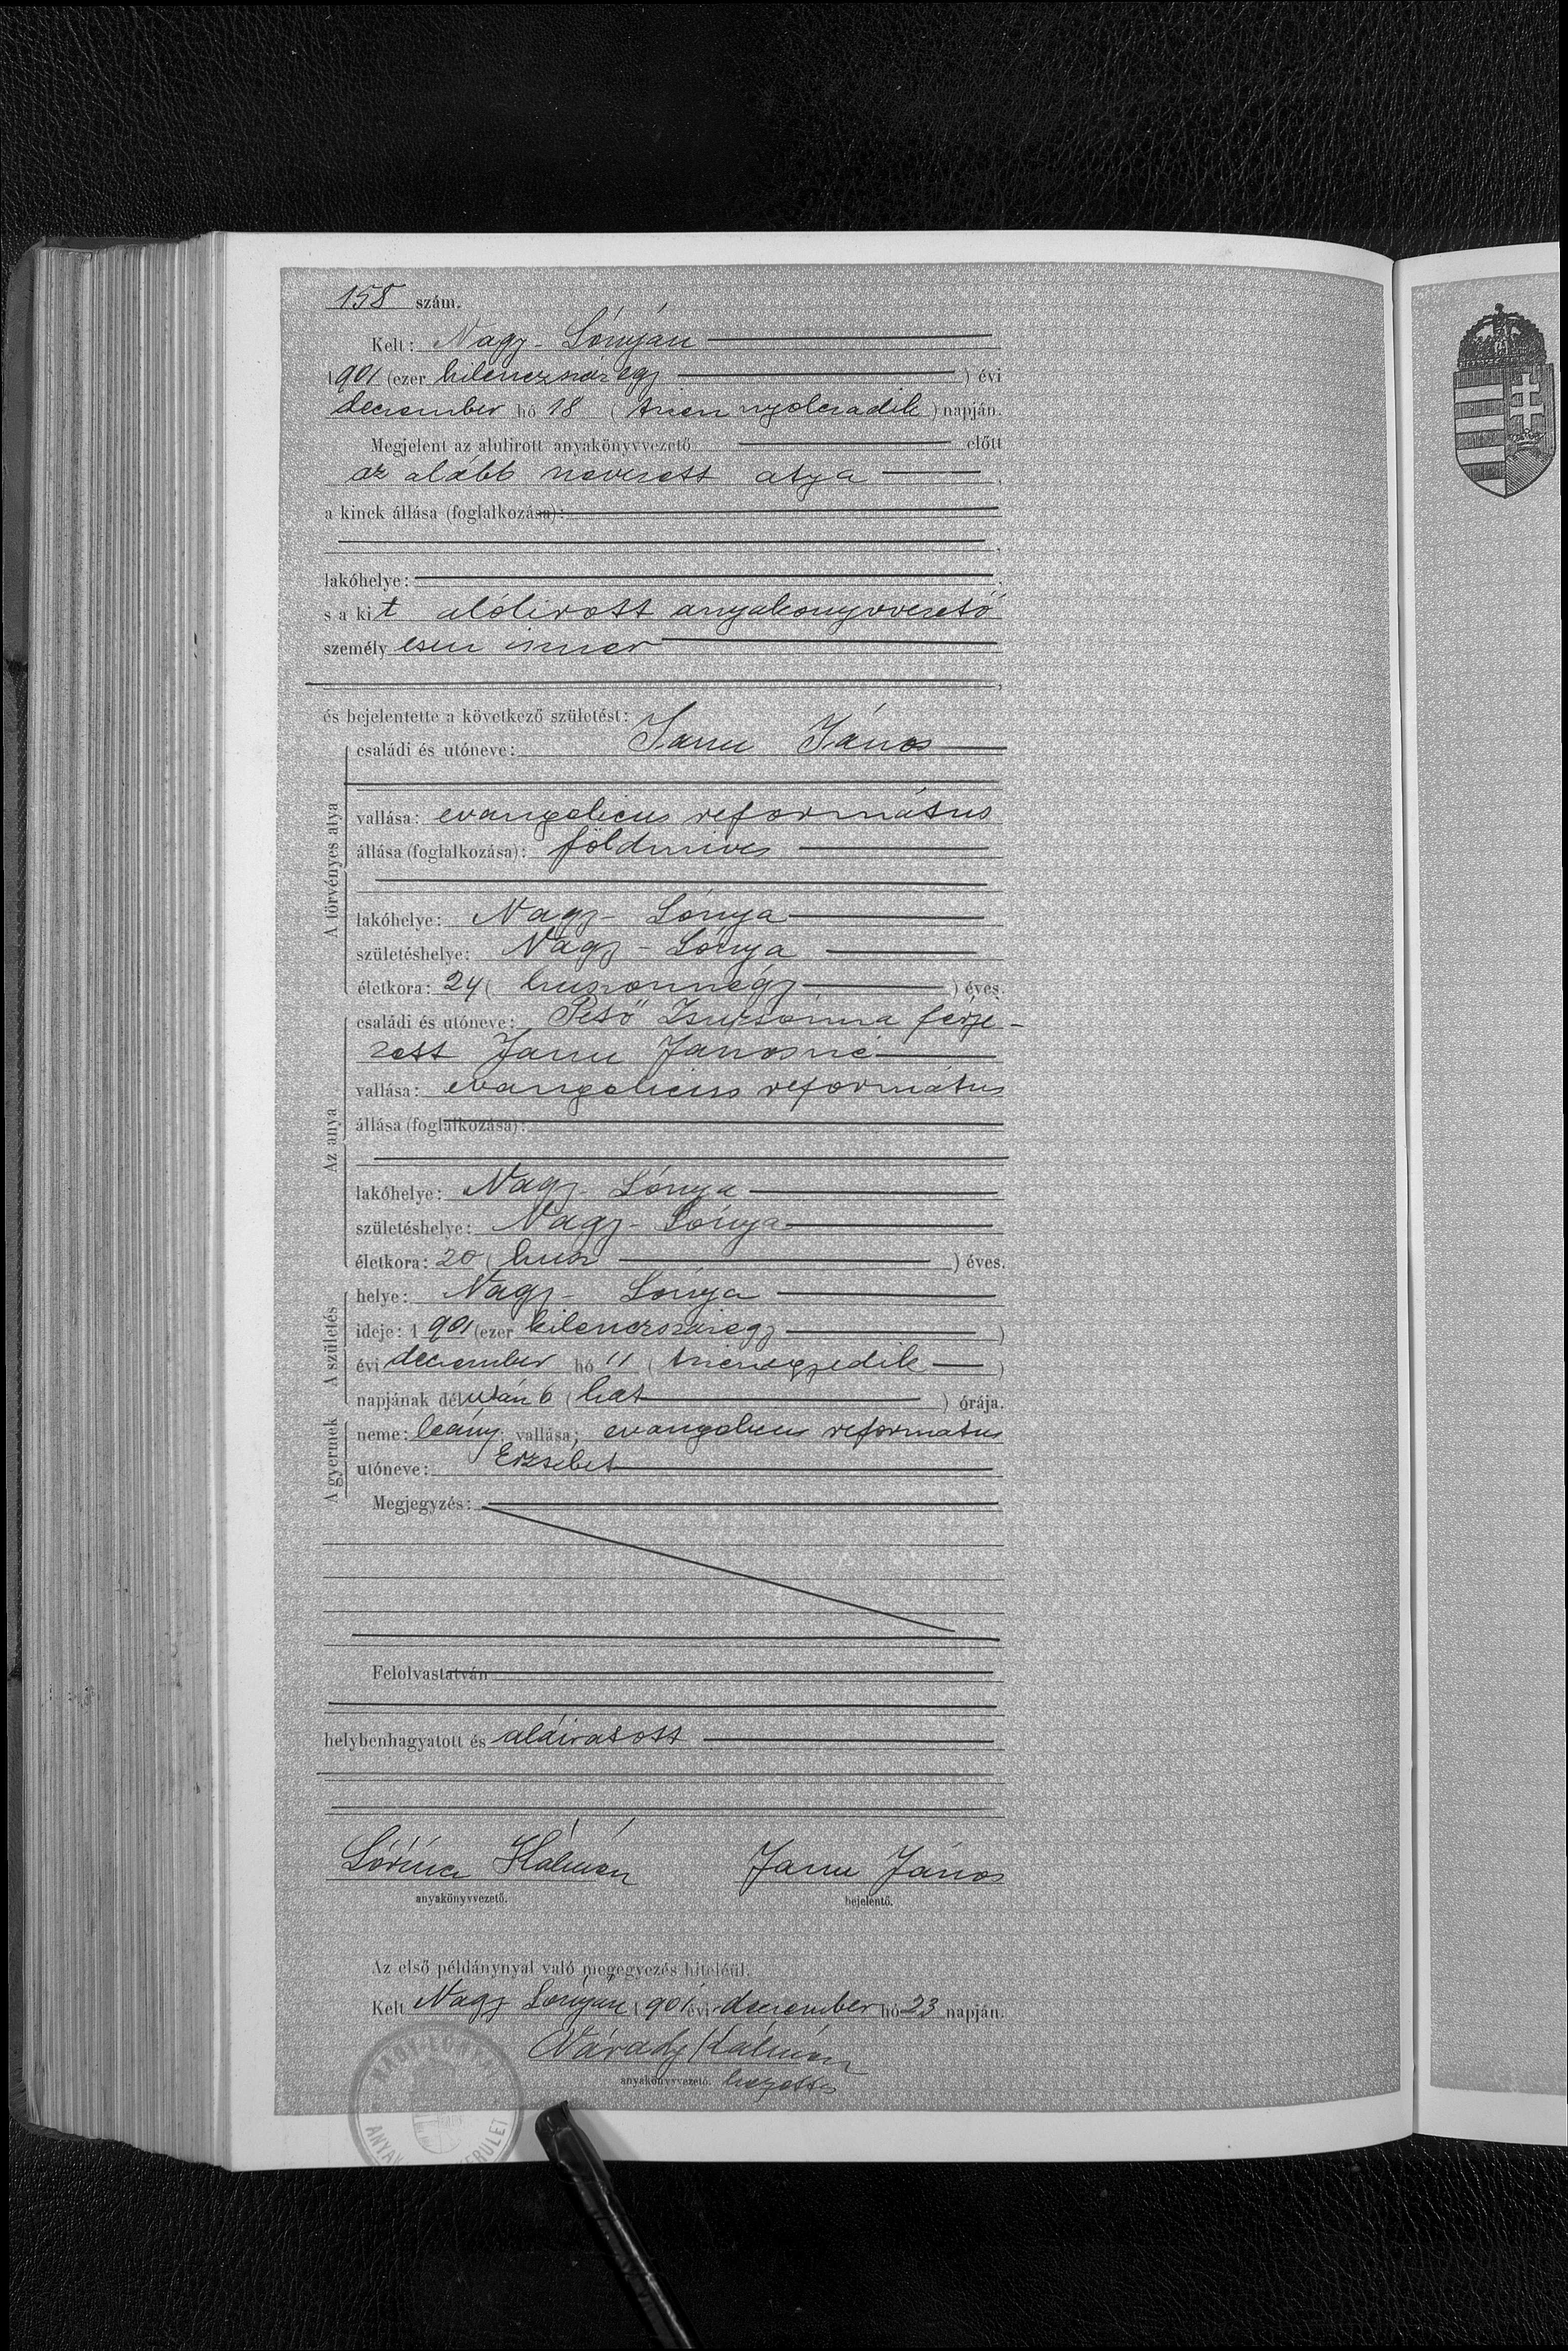 158 szám.
Kelt: Nagy-Lónyán
1901 (ezer kilenczszáz egy) évi
december hó 18 (tizen nyolczadik) napján.
Megjelent az alulirott anyakönyvvezető előtt
az alább nevezett atya,
a kinek állása (foglalkozása):
lakóhelye:
s a kit alólirott anyakönyvvezető
személyesen ismer
és bejelentette a következő születést:
A törvényes atya
családi és utóneve: Janu János
vallása: evangelicus református
állása (foglalkozása): földmives
lakóhelye: Nagy-Lónya
születéshelye: Nagy-Lónya
életkora: 24 (huszonnégy) éves.
Az anya
családi és utóneve: Pető Zsuzsánna férje-
zett Janu Jánosné
vallása: evangelicus református
állása (foglalkozása):
lakóhelye: Nagy-Lónya
születéshelye: Nagy-Lónya
életkora: 20 (husz) éves.
A születés
helye: Nagy-Lónya
ideje: 1901 (ezer kilenczszázegy)
évi december hó 11 (tizenegyedik)
napjának délután 6 (hat) órája.
A gyermek
neme: leány; vallása; evangelicus reformatus
utóneve: Erzsébet
Megjegyzés:
Felolvastatván
helybenhagyatott és aláiratott
Lőrincz Kálmán Janu János
anyakönyvvezető. bejelentő.
Az első példánynyal való megegyezés hiteléül.
Kelt Nagy Lónyán 1901 évi december hó 23 napján.
Várady Kálmán
anyakönyvvezető. helyettes
NAGY-LÓNYAI
ANYAK KERÜLET